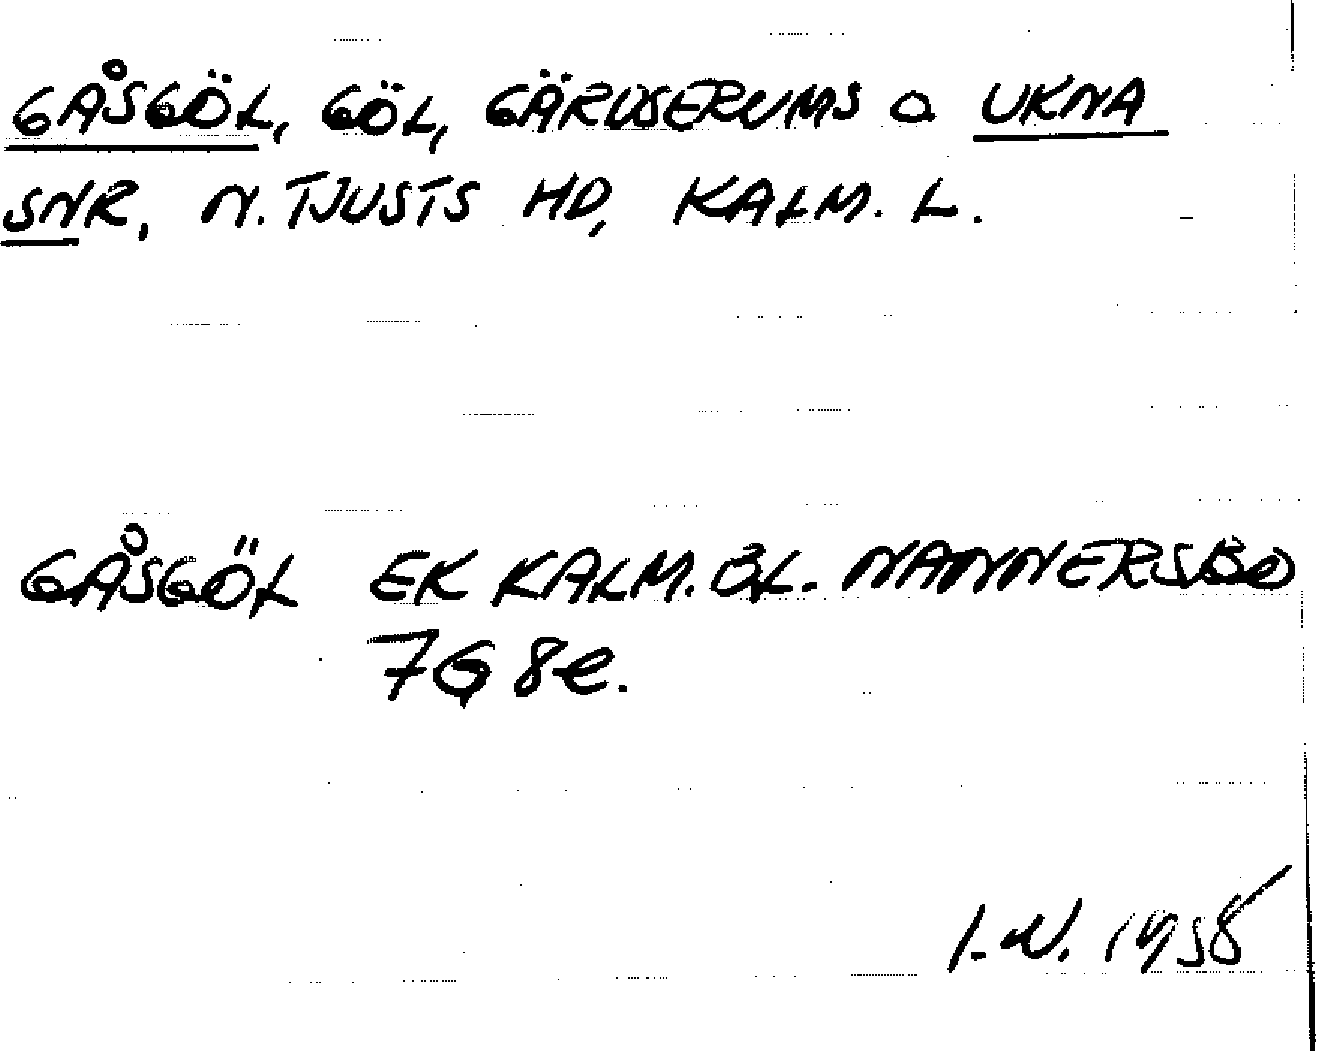 GÅSGÖL, GÖL, GÄRDSERUMS O UKNA
SNR, N. TJUSTS HD, KALM. L.
GÅSGÖL EK KALM. BL. NANNERSBO
7G 8e.
I.N. 1958